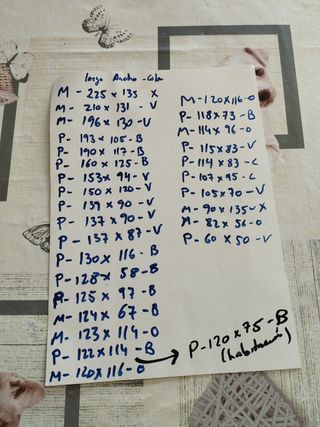 largo Ancho - Cola
M - 225 x 135 X
M - 210 x 131 - V
M - 196 x 130 - V
P - 193 x 105 - B
P - 190 x 117 - B
P - 160 x 125 - B
P - 153 x 94 - V
P - 150 x 120 - V
P - 139 x 90 - V
P - 137 x 90 - V
P - 137 x 87 - V
P - 130 x 116 - B
P - 128 x 58 - B
P - 125 x 97 - B
M - 124 x 67 - B
M - 123 x 114 - O
P - 122 x 114 - B
M - 120 x 116 - O
M - 120 x 116 - O
P - 118 x 73 - B
M - 114 x 96 - O
P - 115 x 83 - V
P - 114 x 83 - C
P - 107 x 95 - C
P - 105 x 70 - V
M - 90 x 135 - X
M - 82 x 56 - O
P - 60 x 50 - V
P - 120 x 75 - B